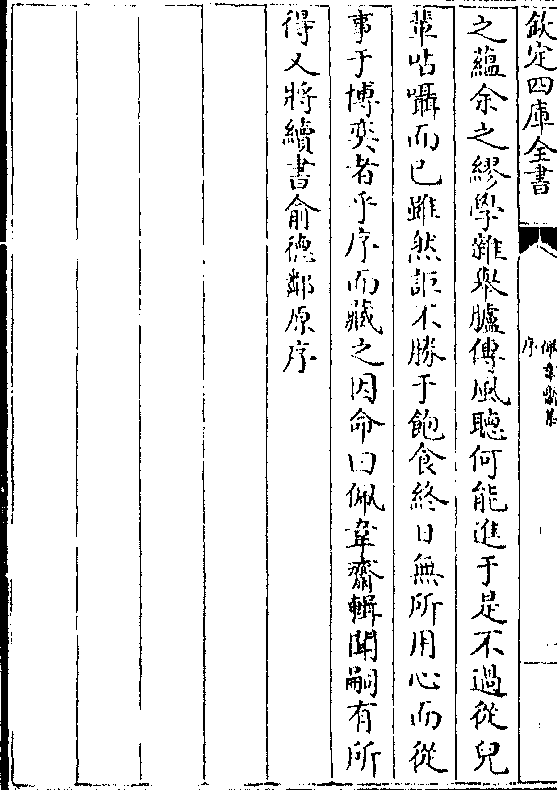 欽定四庫全書
佩韋齋集
序
之蘊余之繆學雜舉臚傳風聽何能進于是不過從兒
輩呫囁而已雖然詎不勝于飽食終日無所用心而從
事于博奕者乎序而藏之因命曰佩韋齋輯聞嗣有所
得又將續書俞德鄰原序